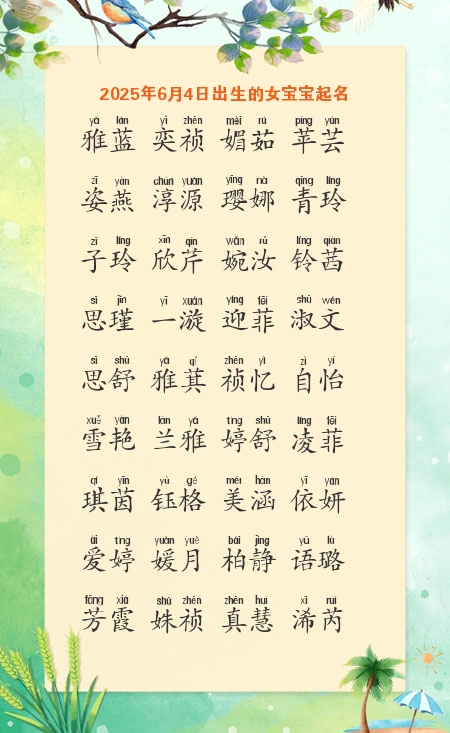 2025年6月4日出生的女宝宝起名
yǎ lán yì zhēn mèi rú píng yún
雅蓝 奕祯 媚茹 苹芸
zī yàn chún yuán yīng nà qīng líng
姿燕 淳源 璎娜 青玲
zǐ líng xīn qín wǎn rǔ líng qiàn
子玲 欣芹 婉汝 铃茜
sī jǐn yī xuán yíng fēi shū wén
思瑾 一漩 迎菲 淑文
sī shū yǎ qí zhēn yì zì yí
思舒 雅萁 祯忆 自怡
xuě yàn lán yǎ tíng shū líng fēi
雪艳 兰雅 婷舒 凌菲
qí yīn yù gé měi hán yī yán
琪茵 钰格 美涵 依妍
ài tíng yuán yuè bǎi jìng yǔ lù
爱婷 媛月 柏静 语璐
fāng xiá shū zhēn zhēn huì xī ruì
芳霞 姝祯 真慧 浠芮